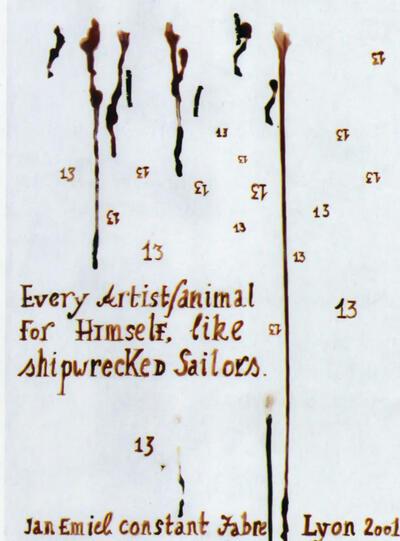 13
13 13
13
13 13 13
13 13
13 13
13
13 13
Every Artist/animal
13
For HImself, like 13
shipwrecKeD Sailors.
13
Jan Emiel constant Fabre Lyon 2001